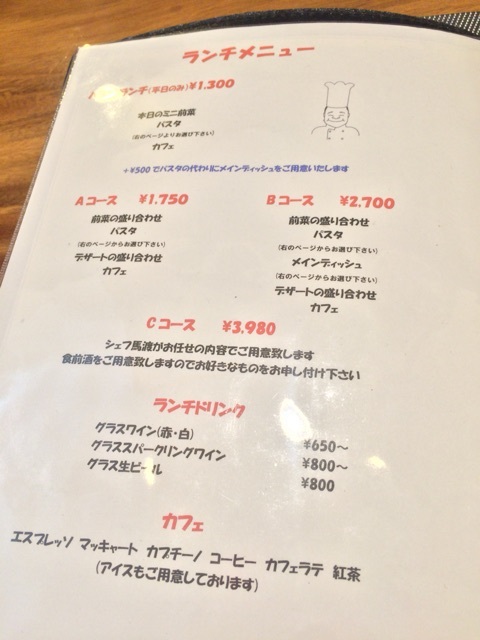 ランチメニュー
ランチ(平日のみ)¥1.300
本日のミニ前菜
パスタ
(右のページよりお選び下さい)
カフェ
+¥500でパスタの代わりにメインディッシュをご用意いたします
Aコース ¥1.750
前菜の盛り合わせ
パスタ
(右のページからお選び下さい)
デザートの盛り合わせ
カフェ
Bコース ¥2.700
前菜の盛り合わせ
パスタ
(右のページからお選び下さい)
メインディッシュ
(右のページからお選び下さい)
デザートの盛り合わせ
カフェ
Cコース ¥3.980
シェフ馬渡がお任せの内容でご用意致します
食前酒をご用意致しますのでお好きなものをお申し付け下さい
ランチドリンク
グラスワイン(赤・白) ¥650～
グラススパークリングワイン ¥800～
グラス生ビール ¥800
カフェ
エスプレッソ マッキャート カプチーノ コーヒー カフェラテ 紅茶
(アイスもご用意しております)